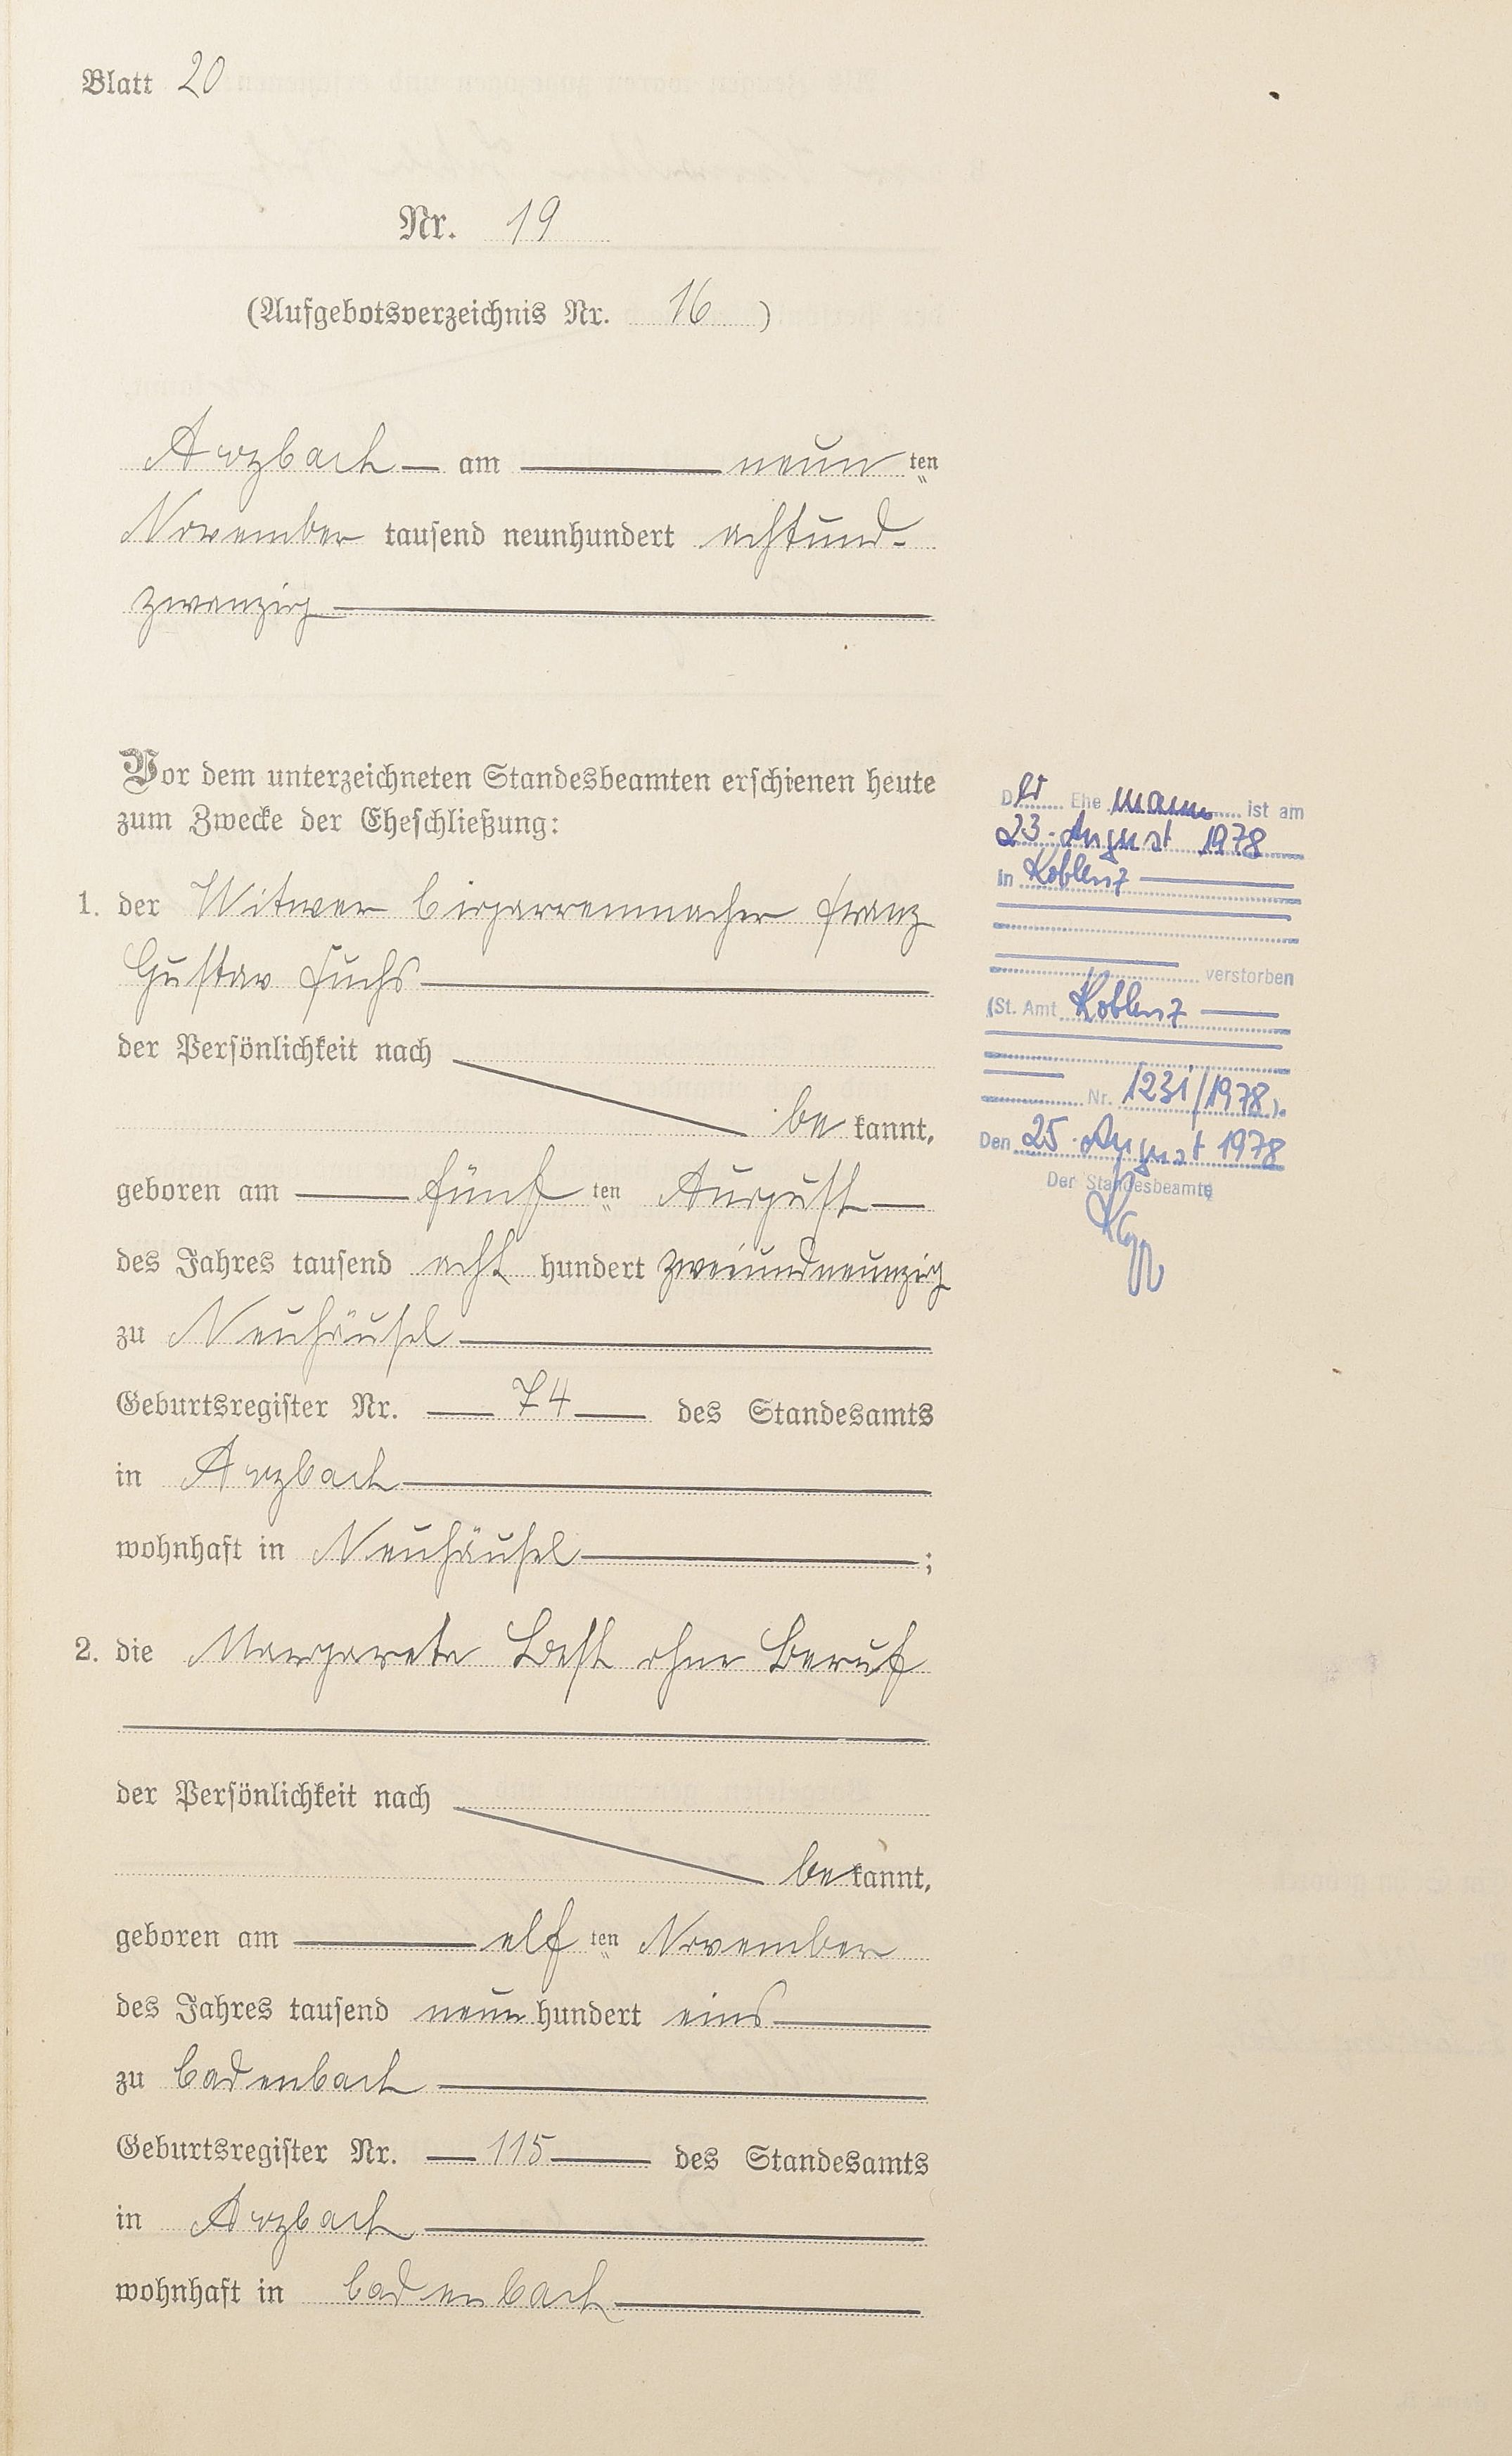 Blatt 20
Nr. 19
(Aufgebotsverzeichnis Nr. 16)
Arzbach am neun ten
November tausend neunhundert achtund-
zwanzig
Vor dem unterzeichneten Standesbeamten erschienen heute
zum Zwecke der Eheschließung:
1. der Witwer Cigarrenmacher Franz
Gustav Fuchs
der Persönlichkeit nach
be kannt,
geboren am fünf ten August
des Jahres tausend acht hundert zweiundneunzig
zu Neuhäusel
Geburtsregister Nr. 74 des Standesamts
in Arzbach
wohnhaft in Neuhäusel ;
2. die Margareta Best ohne Beruf
der Persönlichkeit nach
be kannt,
geboren am elf ten November
des Jahres tausend neun hundert eins
zu Cadenbach
Geburtsregister Nr. 115 des Standesamts
in Arzbach
wohnhaft in Cadenbach
Der Ehe mann ist am
23. August 1978
in Koblenz
verstorben
(St. Amt Koblenz
Nr. 1231/1978).
Den 25. August 1978
Der Standesbeamte